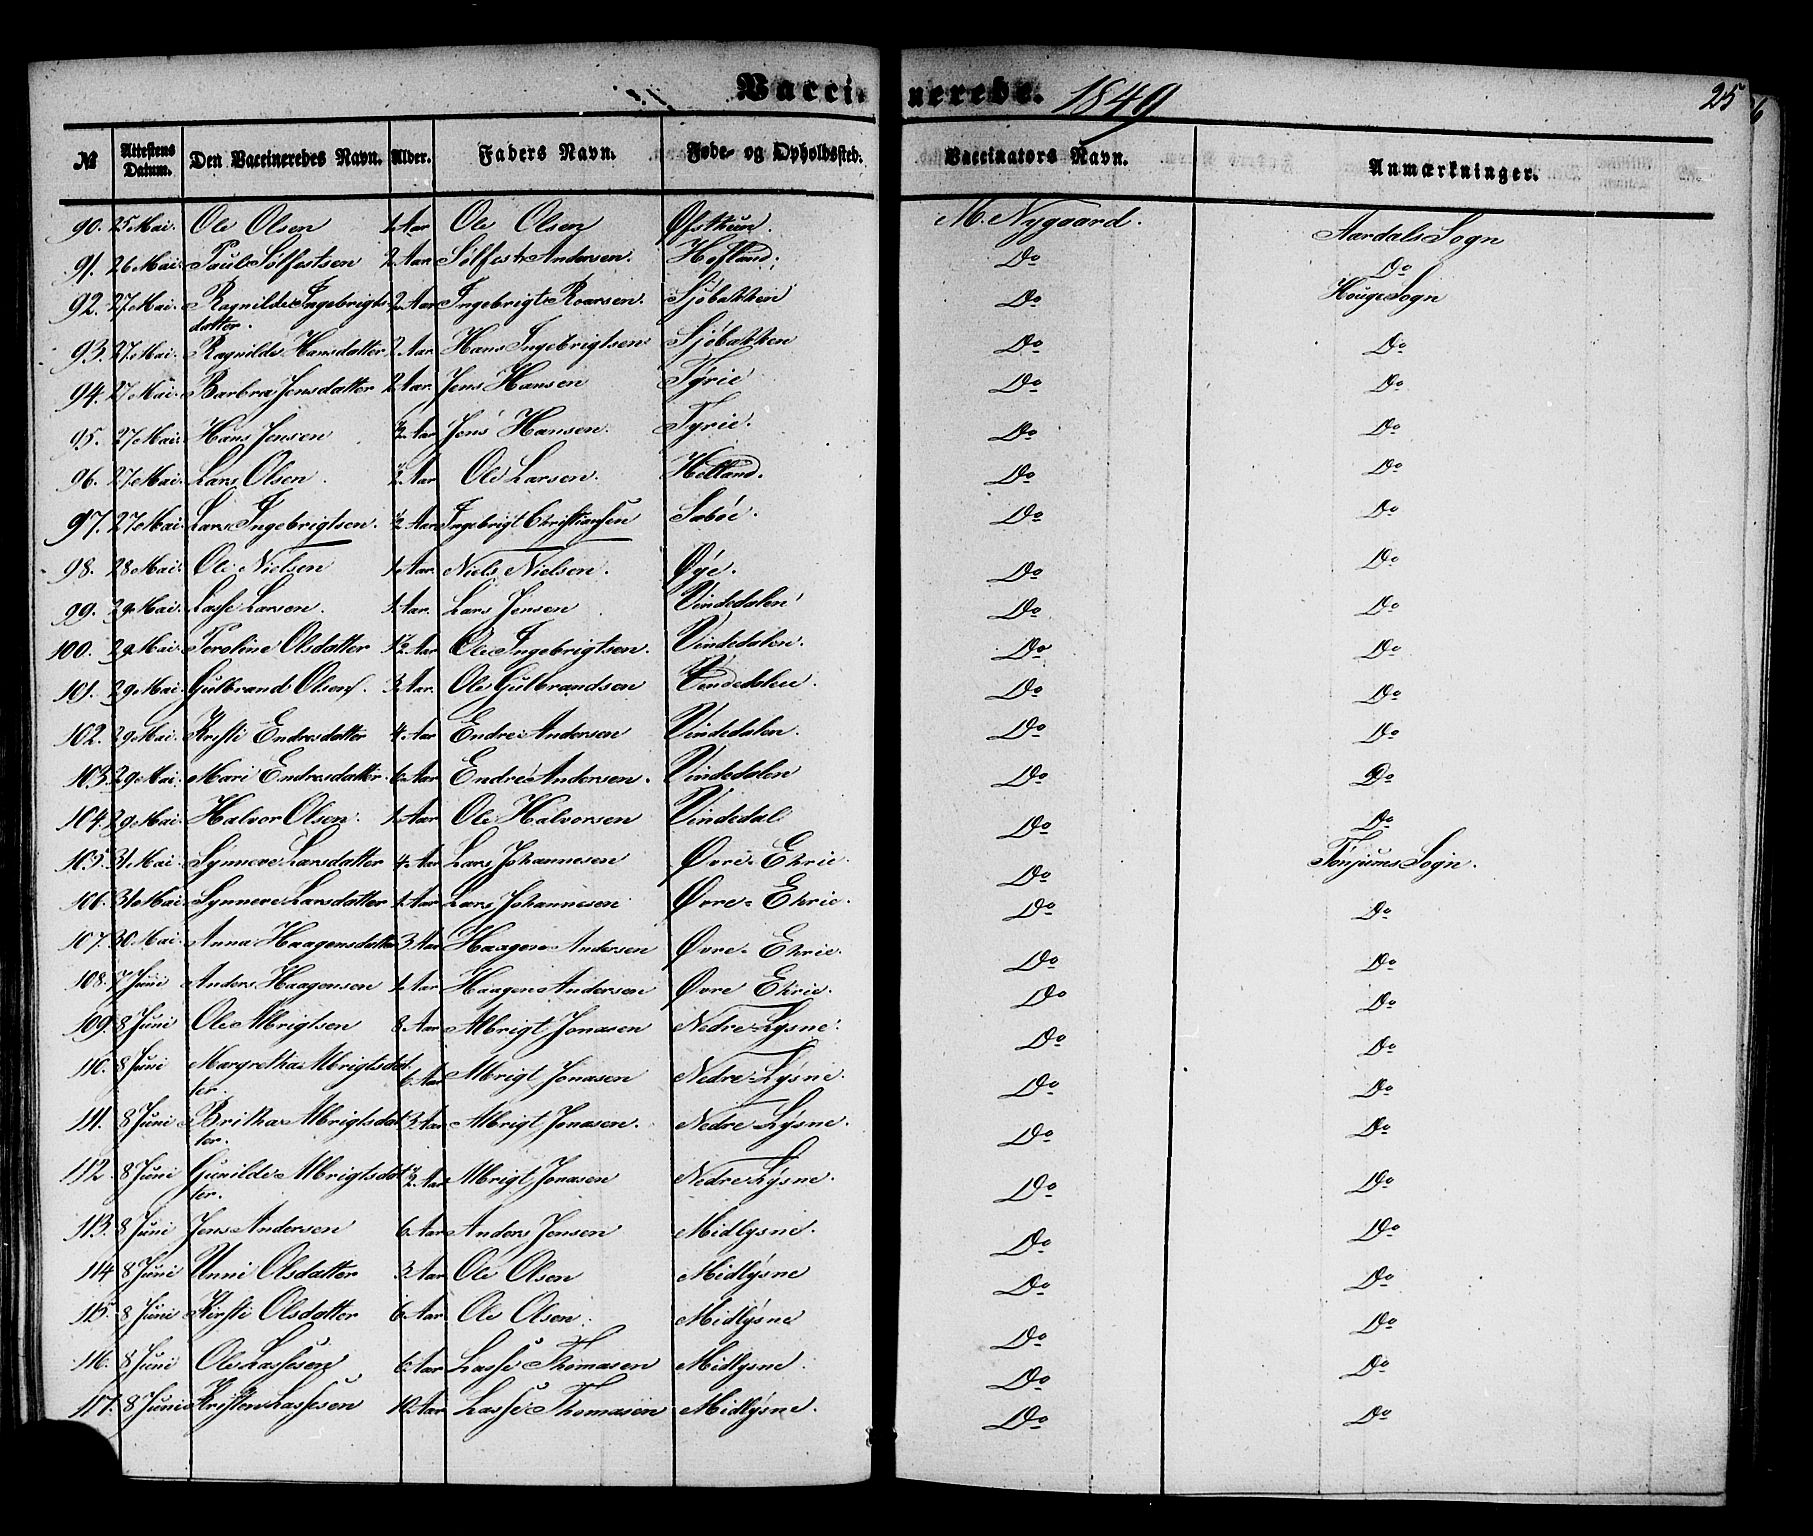 Vaccinerede. 1849 25
№ Attestens Datum. Den Vaccineredes Navn. Alder. Faders Navn. Føde- og Opholdssted. Vaccinators Navn. Anmærkninger.
90. 25 Mai. Ole Olsen 1 Aar Ole Olsen Ofsthun. M. Nygaard. Aardals Sogn
91. 26 Mai. Paul Sølfestsen 2 Aar Sølfest Andersen. Hofland. Do Do
92. 27 Mai. Ragnilde Ingebrigts 2 Aar Ingebrigt Roarsen. Sjøbakken Do Houge Sogn
datter.
93. 27 Mai. Ragnilde Hansdatter 2 Aar Hans Ingebrigtsen Sjøbakken Do Do
94. 27 Mai. Barbra Jensdatter 2 Aar. Jens Hansen Tyrie Do Do
95. 27 Mai. Hans Jensen ½ Aar Jens Hansen. Tyrie. Do Do
96. 27 Mai. Lars Olsen. ½ Aar Ole Larsen. Do Do
97. 27 Mai. Lars Ingebrigtsen. ½ Aar Ingebrigt Christiansen Sabøe. Do Do
98. 28 Mai. Ole Nielsen 1 Aar Niels Nielsen. Øye. Do Do
99. 29 Mai. Lasse Larsen. 1 Aar. Lars Jensen Vindedalen Do Do
100. 29 Mai. Peroline Olsdatter 1½ Aar Ole Ingebrigtsen. Vindedalen. Do Do
101. 29 Mai. Gulbrand Olsen. 3 Aar. Ole Gulbrandsen Vindedalen. Do Do
102. 29 Mai. Kristi Endresdatter 4 Aar Endre Andersen Vindedalen. Do Do
103. 29 Mai. Mari Endresdatter 6 Aar Endre Andersen. Vindedalen Do Do
104. 29 Mai. Halvor Olsen. 1 Aar Ole Halvorsen Vindedal Do Do
105. 31 Mai. Synneve Larsdatter 4 Aar Lars Johannesen Øvre-Ekrie. Do Tønjums Sogn.
106. 31 Mai. Synneve Larsdatter 1 Aar Lars Johannesen Øvre-Ekrie. Do Do
107. 30 Mai. Anna Haagensdatter 3 Aar Haagen Andersen Øvre-Ekrie. Do Do
108. 7 Juni Anders Haagensen 1 Aar Haagen Andersen Øvre Ekrie. Do Do
109. 8 Juni Ole Albrigtsen 8 Aar Albrigt Jonasen Nedre-Lysne. Do Do
110. 8 Juni Margretha Albrigtsdat 6 Aar Albrigt Jonasen Nedre-Lysne. Do Do
ter.
111. 8 Juni Britha Albrigtsdat 3 Aar Albrigt Jonasen. Nedre Lysne. Do Do
ter.
112. 8 Juni Gunilde Albrigtsdat ½ Aar Albrigt Jonasen Nedre-Lysne. Do Do
ter.
113. 8 Juni Jens Andersen 6 Aar Anders Jensen Midlysne. Do Do
114 8 Juni Unni Olsdatter 3 Aar Ole Olsen Midlysne Do Do
115. 8 Juni Kirsti Olsdatter 6 Aar Ole Olsen. Midlysne Do Do
116. 8 Juni Ole Lassesen 6 Aar Lasse Thomasen Midlysne. Do Do
117. 8 Juni Kristen Lassesen 10 Aar Lasse Thomasen Midlysne. Do Do